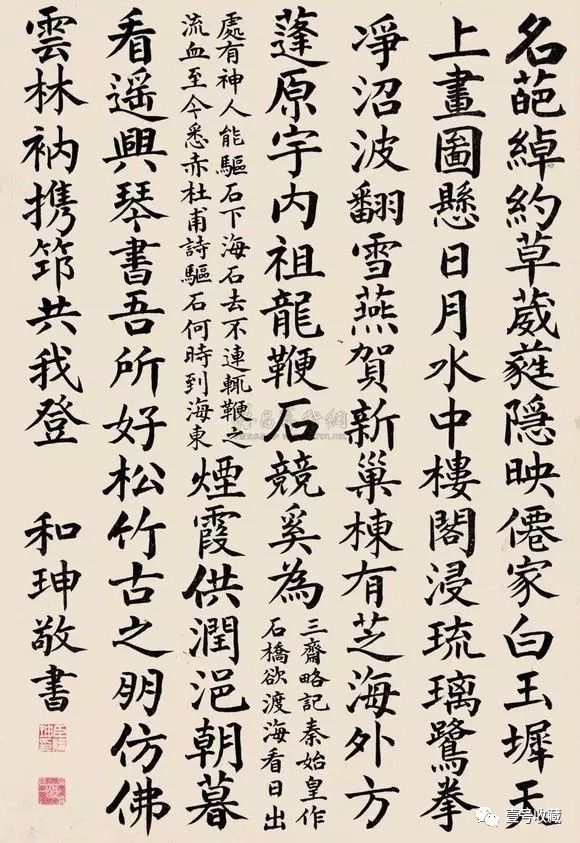 名葩綽約草葳蕤隱映僊家白玉墀天
上畫圖懸日月水中樓閣浸琉璃鷺拳
凈沼波翻雪燕賀新巢棟有芝海外方
蓬原宇内祖龍鞭石競奚為
三齋略記秦始皇作
石橋欲渡海看日出
處有神人能驅石下海石去不連輒鞭之
流血至今悉赤杜甫詩驅石何時到海東
煙霞供潤浥朝暮
看遥興琴書吾所好松竹古之朋仿佛
雲林衲携筇共我登
和珅敬書
壹号收藏